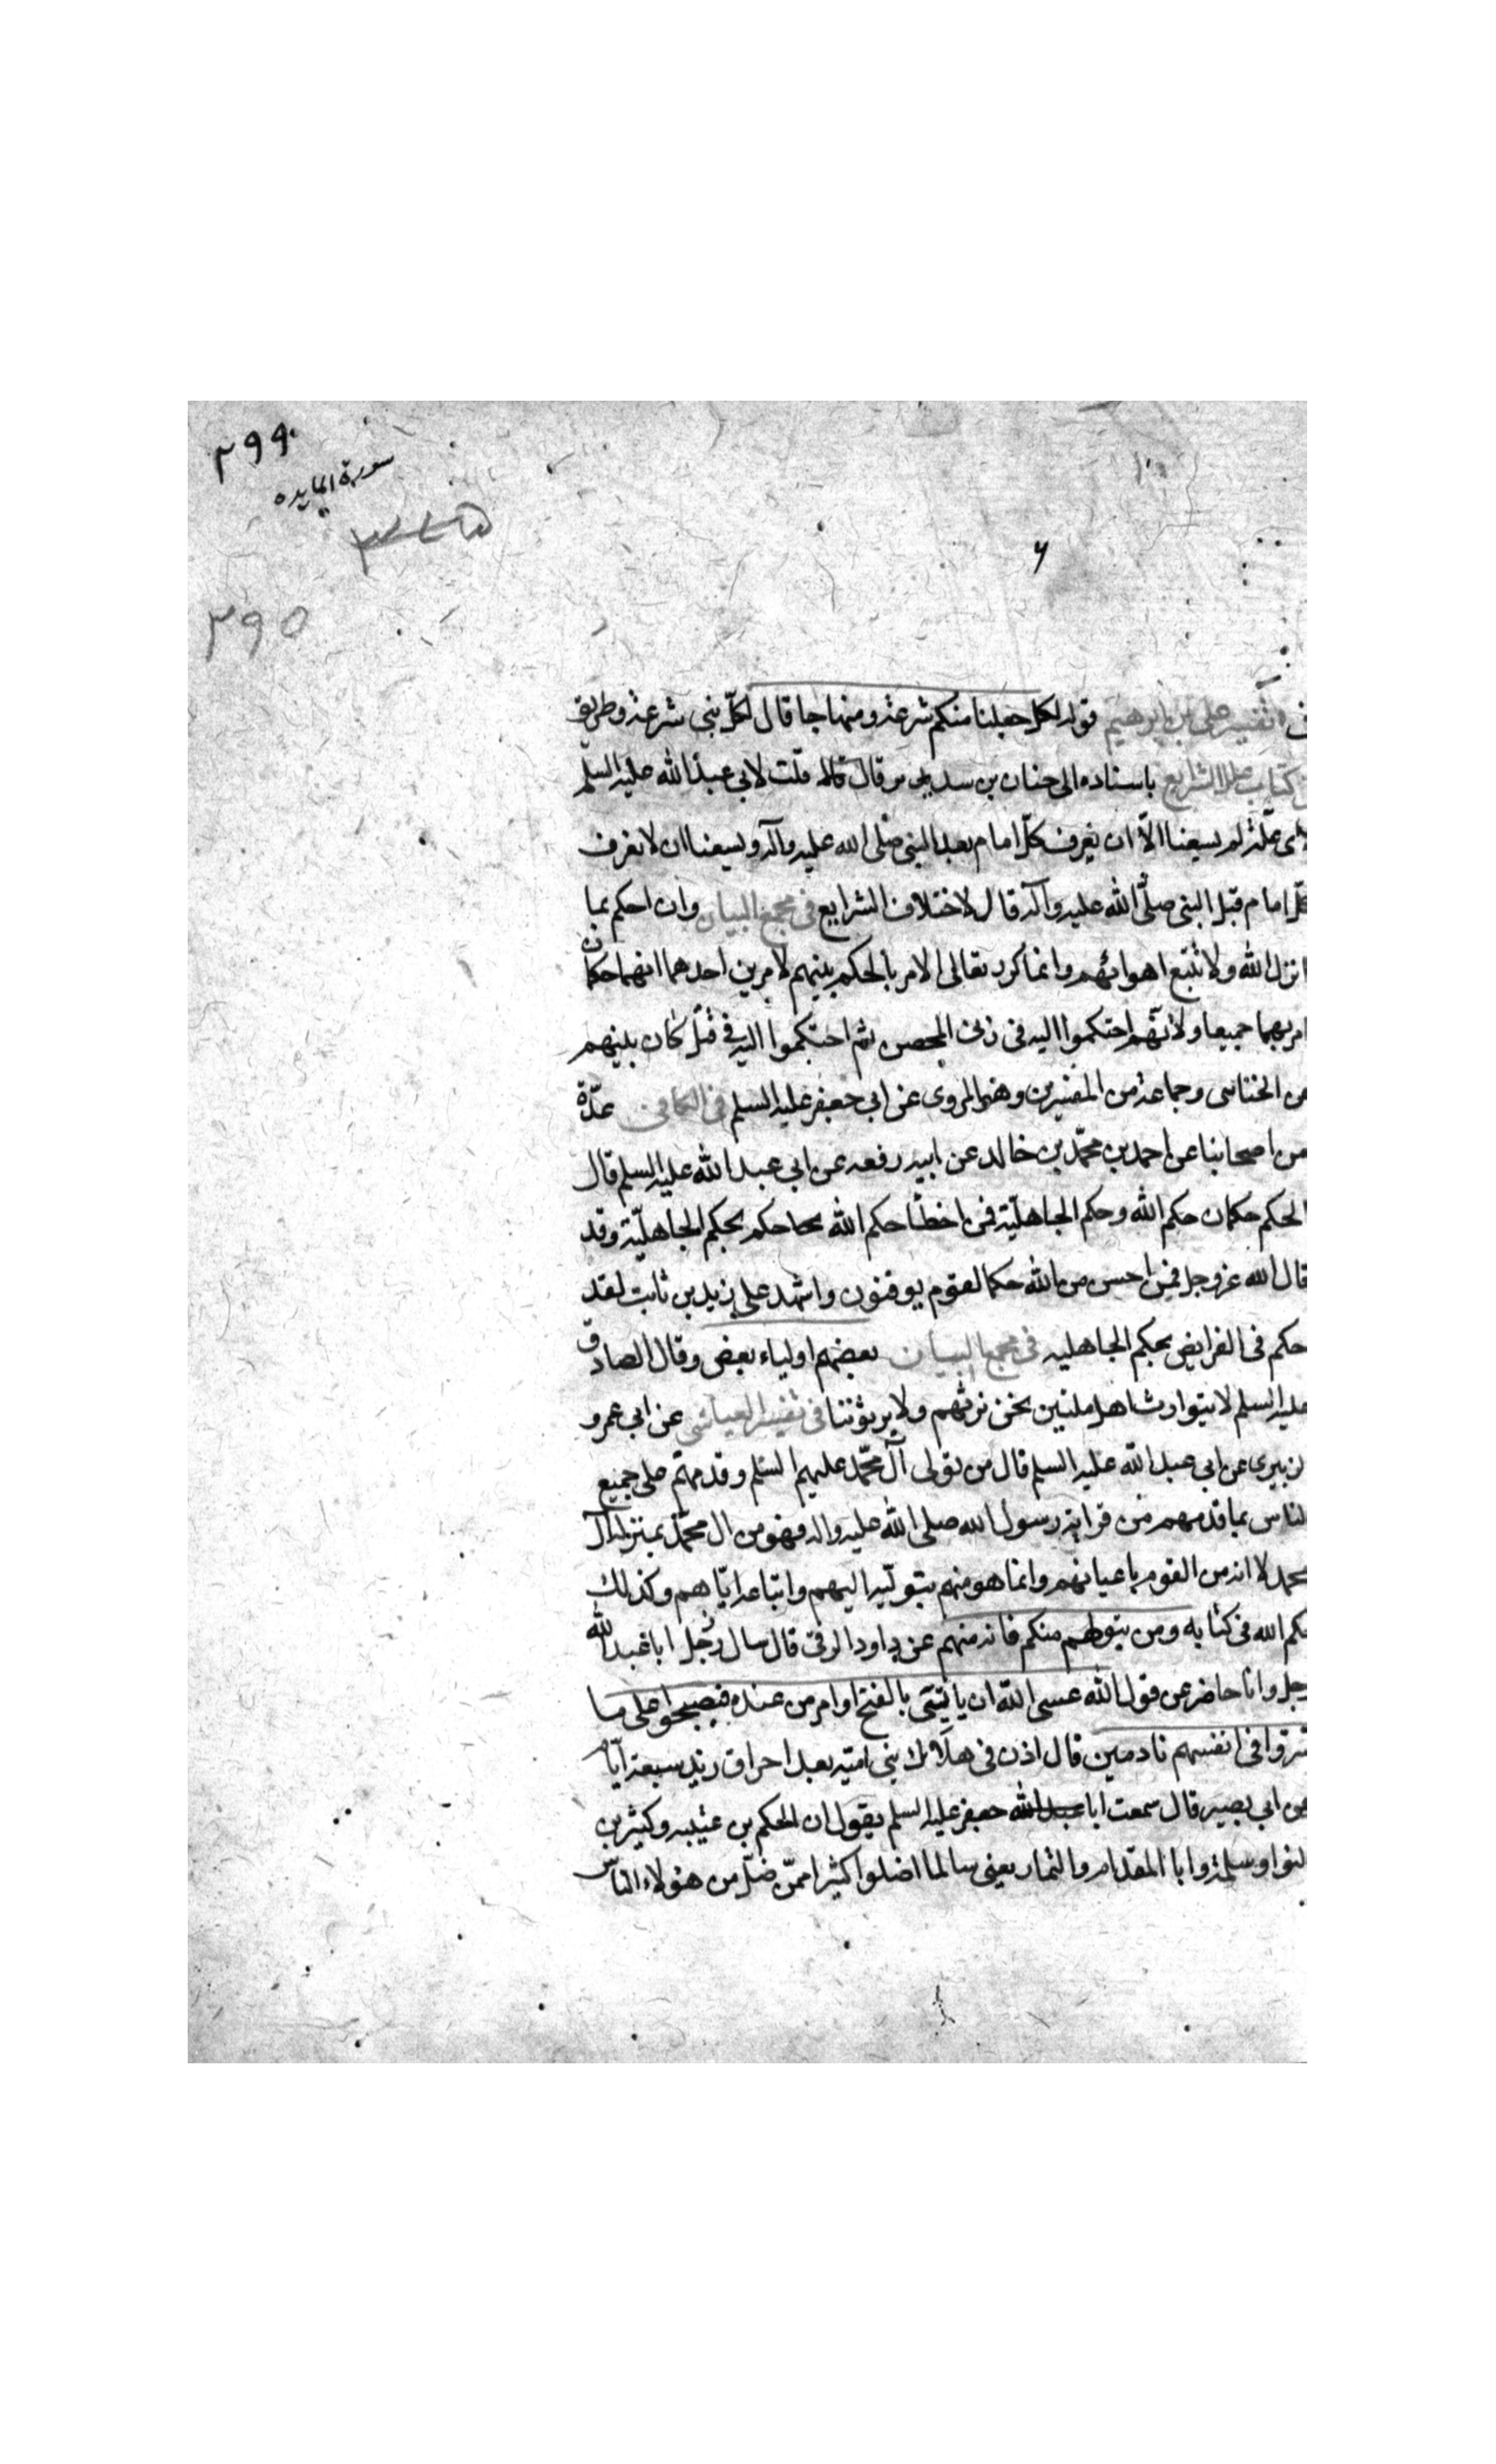 ۲۹۹
سورة المايده
۲۹۵
۶
فى تفسير على بن ابرهيم قوله لكل جعلنا منكم شرعة ومنهاجا قال لكل نبى شرعة وطريق
كتاب علل الشرايع باسناده الى حنان بن سدير قال قلت لابى عبد الله عليه السلم
لاى علة لم يسعنا الا ان نعرف كل امام بعد النبى صلى الله عليه وآله ويسعنا ان لا نعرف
كل امام قبل النبى صلى الله عليه وآله قال لاختلاف الشرايع فى مجمع البيان وان احكم بما
انزل الله ولا تتبع اهوائهم وانما كرر تعالى الامر بالحكم بينهم لامرين احدهما انهما حكمان
امر بهما جميعا ولانهم احتكموا اليه فى زنى المحصن ثم احتكموا اليه فى قتل كان بينهم
من وجماعة من المفسرين وهو المروى عن ابى جعفر عليه السلم فى الكافى عدة
من اصحابنا عن احمد بن محمد بن خالد عن ابيه رفعه عن ابى عبد الله عليه السلم قال
الحكم حكمان حكم الله وحكم الجاهلية فمن اخطأ حكم الله حكم بحكم الجاهلية وقد
قال الله عز وجل فمن احسن من الله حكما لقوم يوقنون واشهد على زيد بن ثابت لقد
حكم فى الفرايض بحكم الجاهليه فى مجمع البيان بعضهم اولياء بعض وقال الصادق
عليه السلم لا يتوارث اهل ملتين نحن نرثهم ولا يرثوننا فى تفسير العياشى عن ابى عمرو
الزبيرى عن ابى عبد الله عليه السلم قال من تولى آل محمد عليهم السلم وقدمهم على جميع
الناس بما قدمهم من قرابة رسول الله صلى الله عليه واله فهو من ال محمد بمنزلة آل
محمد لا انه من القوم باعيانهم وانما هو منهم بتوليه اليهم واتباعه اياهم وكذلك
حكم الله فى كتابه ومن يتولهم منكم فانه منهم عن داود الرقى قال سال رجل ابا عبد الله
رجل وانا حاضر عن قول الله عسى الله ان ياتى بالفتح او امر من عنده فيصبحوا على ما
اسروا فى انفسهم نادمين قال اذن فى هلاك بنى امية بعد احراق زيد سبعة ايام
عن ابى بصير قال سمعت ابا جعفر عليه السلم يقول ان الحكم بن عتيبه وكثير بن
النوا وسلمة وابا المقدام والتمار يعنى سالما اضلوا كثيرا ممن ضل من هولاء الناس